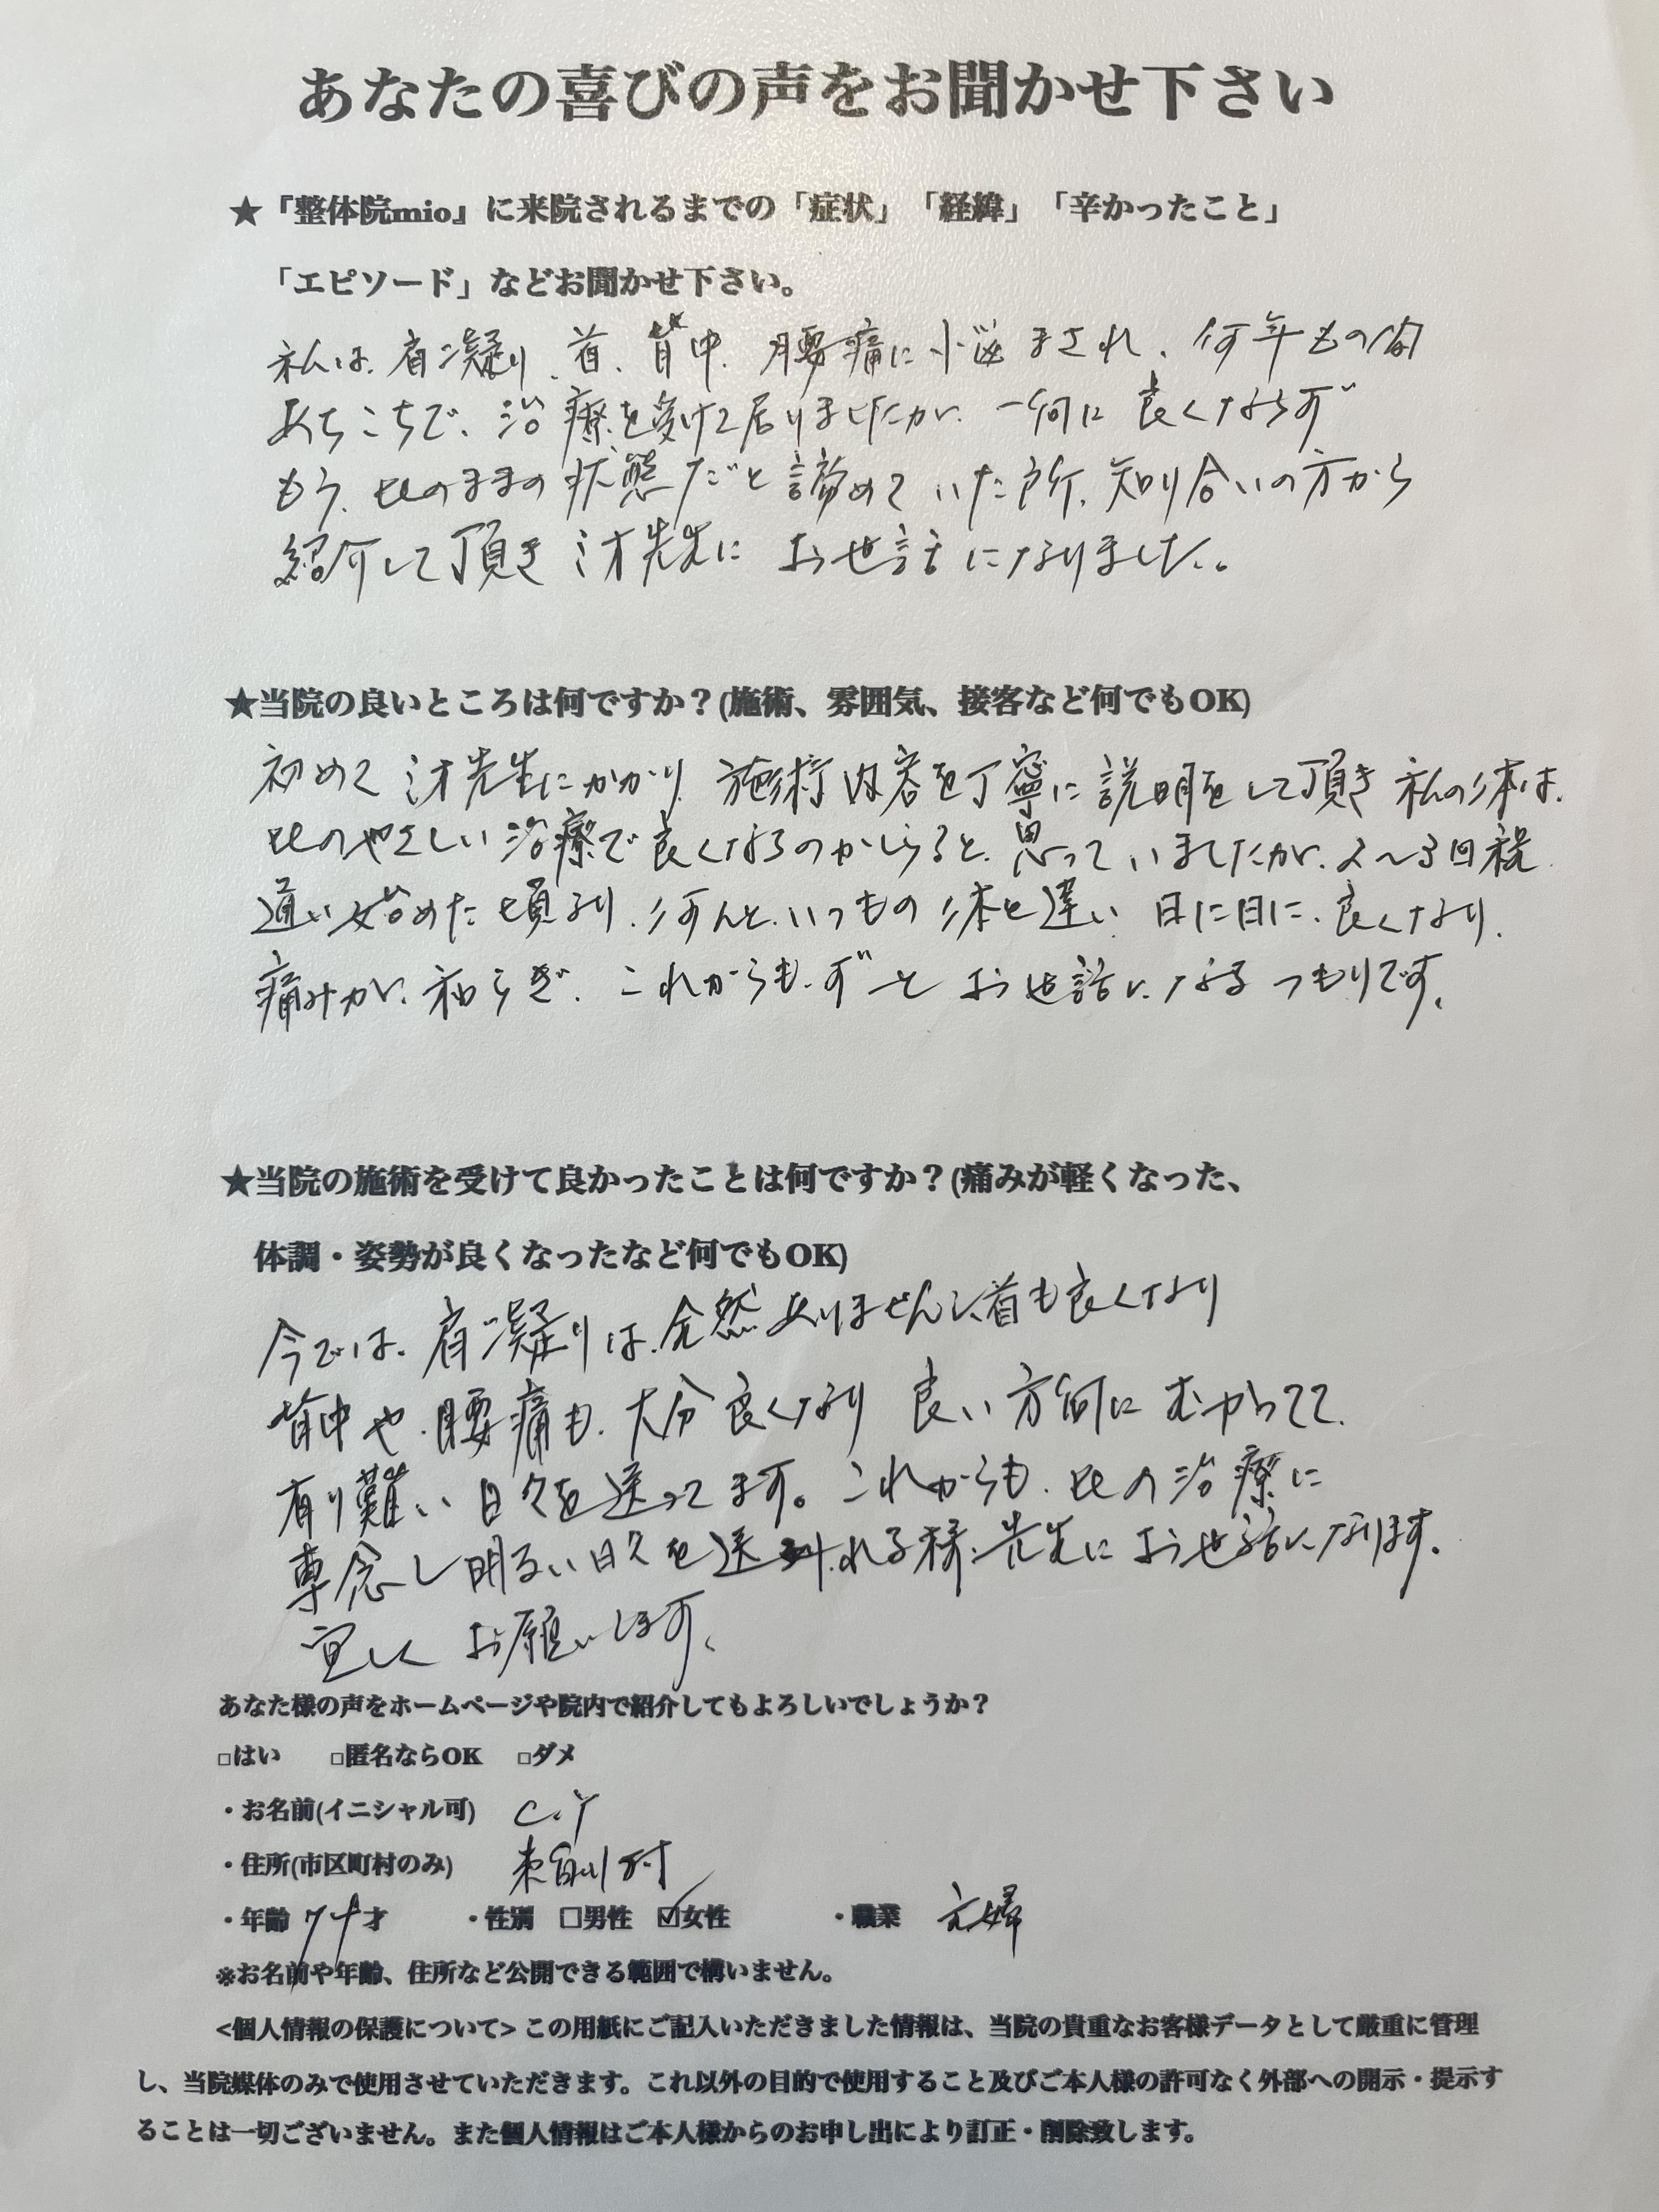 あなたの喜びの声をお聞かせ下さい
★『整体院mio』に来院されるまでの「症状」「経緯」「辛かったこと」
「エピソード」などお聞かせ下さい。
私は、肩凝り、首、背中、腰痛に悩まされ、何年もの間
あちこちで、治療を受けて居りましたが、一向に良くならず
もう、此のままの状態だと諦めていた所、知り合いの方から
紹介して頂き 先生に お世話になりました。
★当院の良いところは何ですか？(施術、雰囲気、接客など何でもOK)
初めて 先生にかかり、施術内容を丁寧に説明をして頂き 私の体は、
此のやさしい治療で良くなるのかしらと、思っていましたが、2〜3回程
通い始めた頃より、何んと、いつもの体と違い 日に日に、良くなり、
痛みが、和らぎ、これからも、ずーと お世話になる つもりです。
★当院の施術を受けて良かったことは何ですか？(痛みが軽くなった、
体調・姿勢が良くなったなど何でもOK)
今では、肩凝りは、全然ありませんし、首も良くなり
背中や、腰痛も、大分良くなり 良い方向に むかってて、
有り難い 日々を送ってます。これからも、此の治療に
専念し明るい日々を送れる様、先生に お世話になります。
宜しく お願いします。
あなた様の声をホームページや院内で紹介してもよろしいでしょうか？
□はい □匿名ならOK □ダメ
・お名前(イニシャル可) C.Y
・住所(市区町村のみ)
・年齢 74才 ・性別 □男性 ☑女性 ・職業 主婦
※お名前や年齢、住所など公開できる範囲で構いません。
<個人情報の保護について> この用紙にご記入いただきました情報は、当院の貴重なお客様データとして厳重に管理
し、当院媒体のみで使用させていただきます。これ以外の目的で使用すること及びご本人様の許可なく外部への開示・提示す
ることは一切ございません。また個人情報はご本人様からのお申し出により訂正・削除致します。